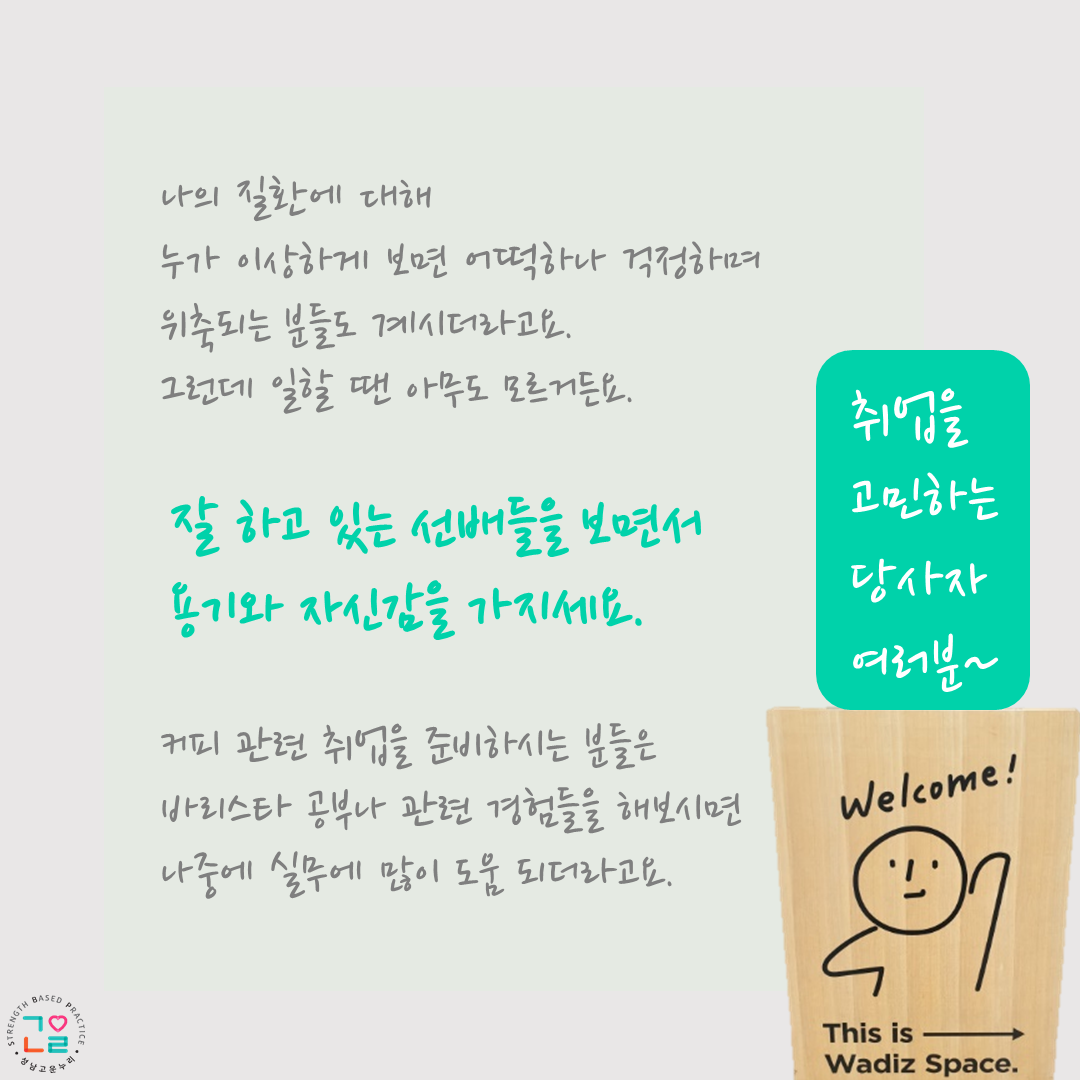 나의 질환에 대해
누가 이상하게 보면 어떡하나 걱정하며
위축되는 분들도 계시더라고요.
그런데 일할 땐 아무도 모르거든요.
잘 하고 있는 선배들을 보면서
용기와 자신감을 가지세요.
커피 관련 취업을 준비하시는 분들은
바리스타 공부나 관련 경험들을 해보시면
나중에 실무에 많이 도움 되더라고요.
취업을
고민하는
당사자
여러분~
Welcome!
This is
Wadiz Space.
STRENGTH BASED PRACTICE
고울
성남고운누리